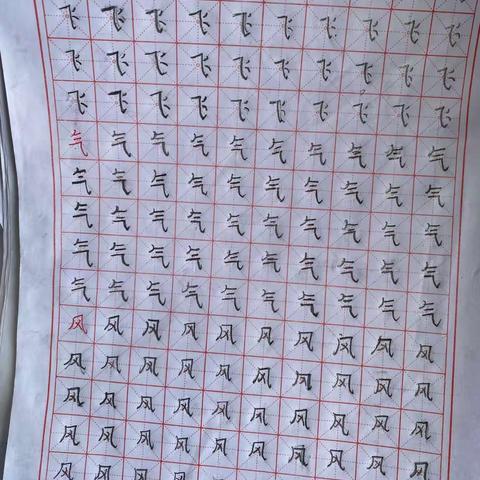 飞飞飞飞飞飞飞飞飞飞
飞飞飞飞飞飞飞飞飞飞
飞飞飞飞飞飞飞飞飞飞
气气气气气气气气气气
气气气气气气气气气气
气气气气气气气气气气
气气气气气气气气气气
气气气气气气气气气气
风风风风风风风风风风
风风风风风风风风风风
风风风风风风风风风风
风风风风风风风风风风
风风风